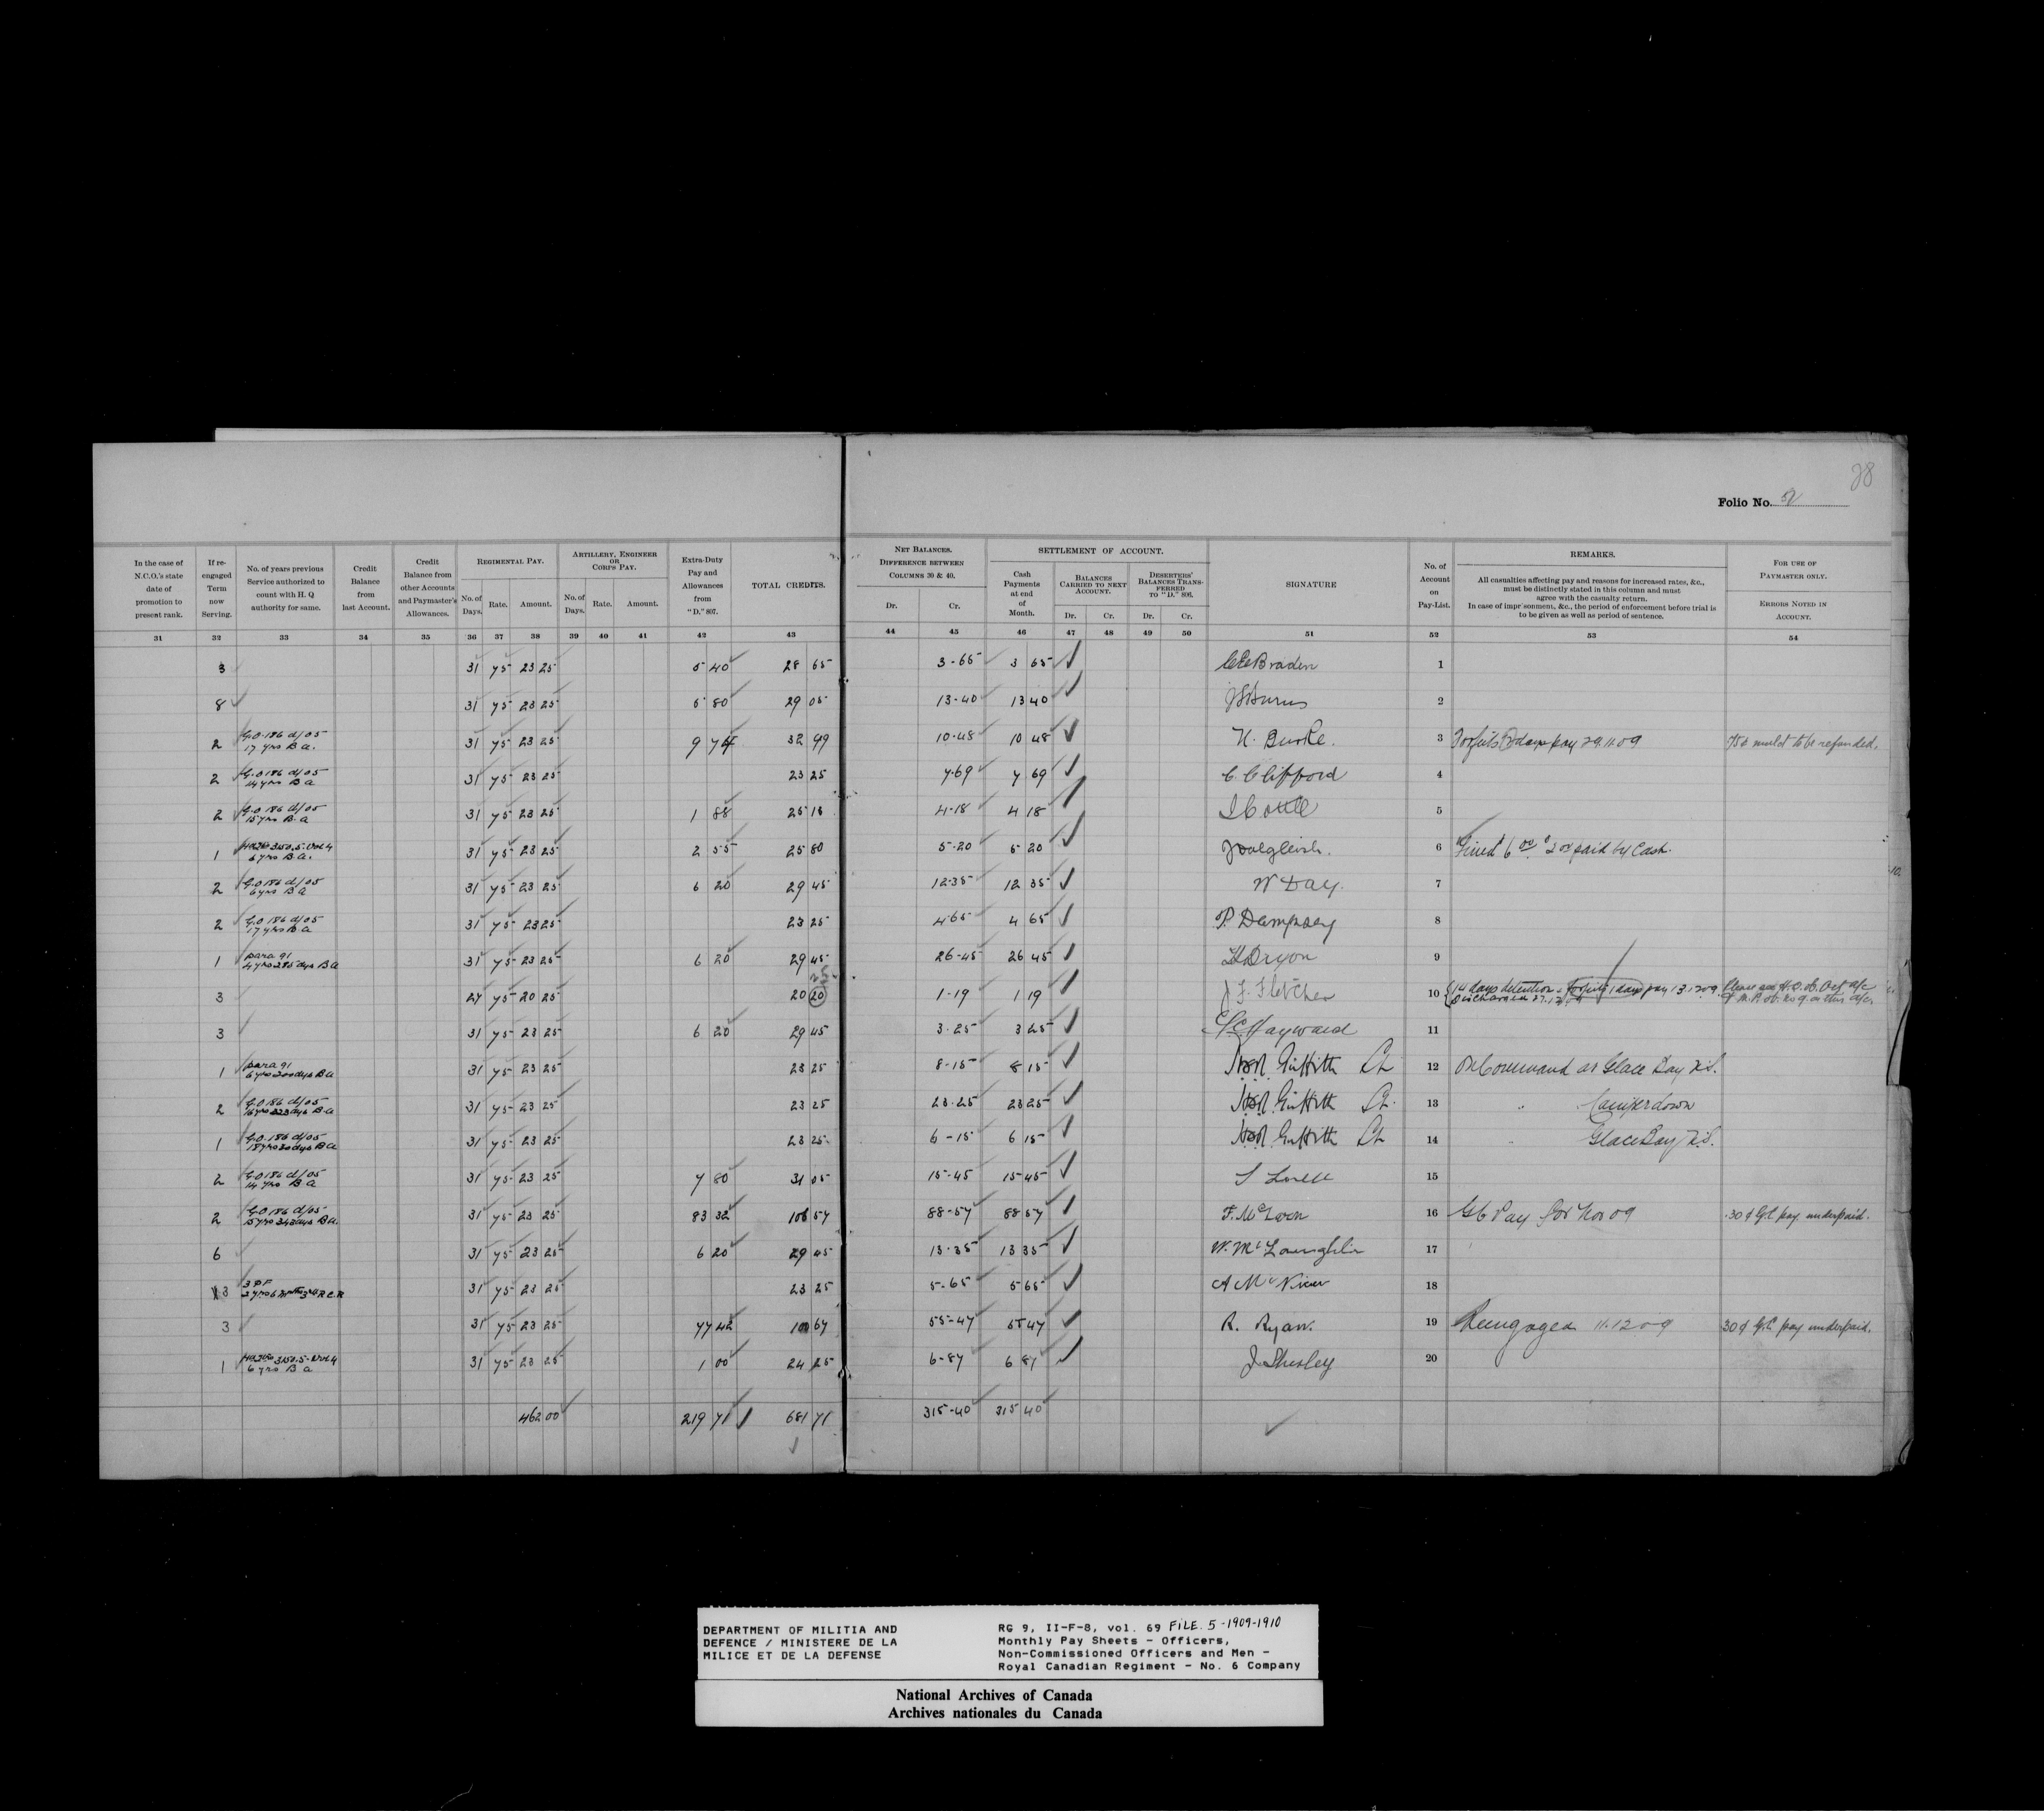 28
Folio No. 52
In the case of N.C.O.'s state date of promotion to present rank.
If re-engaged Term now Serving.
No. of years previous Service authorized to count with H. Q authority for same.
Credit Balance from last Account.
Credit Balance from other Accounts and Paymaster's Allowances.
REGIMENTAL PAY.
No. of Days. Rate. Amount.
ARTILLERY, ENGINEER OR CORPS PAY.
No. of Days. Rate. Amount.
Extra-Duty Pay and Allowances from "D." 807.
TOTAL CREDITS.
NET BALANCES.
DIFFERENCE BETWEEN COLUMNS 30 & 40.
Dr. Cr.
SETTLEMENT OF ACCOUNT.
Cash Payments at end of Month.
BALANCES CARRIED TO NEXT ACCOUNT.
Dr. Cr.
DESERTERS' BALANCES TRANSFERRED TO "D." 806.
Dr. Cr.
SIGNATURE
No. of Account on Pay-List.
REMARKS.
All casualties affecting pay and reasons for increased rates, &c., must be distinctly stated in this column and must agree with the casualty return.
In case of imprisonment, &c., the period of enforcement before trial is to be given as well as period of sentence.
FOR USE OF PAYMASTER ONLY.
ERRORS NOTED IN ACCOUNT.
31 32 33 34 35 36 37 38 39 40 41 42 43 44 45 46 47 48 49 50 51 52 53 54
3 31 75 23 25 5 40 28 65 3-65 3 65 C E Braden 1
8 31 75 23 25 5 80 29 05 13-40 13 40 Burns 2
2 G.O. 186 d/05 17 yrs B a. 31 75 23 25 9 74 32 99 10-48 10 48 H. Burke. 3 Forfeits days pay 29.11.09 75¢ to be refunded.
2 G.O 186 d/05 14 yrs B a 31 75 23 25 23 25 7-69 7 69 C. Clifford 4
2 G.O. 186 d/05 15 yrs B. a 31 75 23 25 1 88 25 13 4-18 4 18 Cottle 5
1 6 yrs B.a. 31 75 23 25 2 55 25 80 5-20 5 20 J Dalgleish. 6 Fined 6 00 2 00 paid by Cash.
2 G.O 186 d/05 6 yrs B a 31 75 23 25 6 20 29 45 12-35 12 35 W Day. 7
2 G.O 186 d/05 17 yrs B a 31 75 23 25 23 25 4-65 4 65 P. Dempsey 8
1 para 91 4 yrs 285 dys B a 31 75 23 25 6 20 29 45 26-45 26 45 Dryon 9
3 27 75 20 25 20 20 1-19 1 19 J. F. Fletcher 10 14 days detention - Forfeits 1 days pay 13.12.09. Discharged 27.12.09
3 31 75 23 25 6 20 29 45 3-25 3 25 Hayward 11
1 para 91 6 yrs 200 dys B a 31 75 23 25 23 25 8-15 8 15 Griffith Lt 12 On Command at Glace Bay N.S.
2 G.O 186 d/05 B a 31 75 23 25 23 25 23-25 23 25 Griffith Lt. 13 " Camperdown
1 G.O. 186 d/05 18 yrs 30 dys B a 31 75 23 25 23 25 6-15 6 15 Griffith Lt 14 " Glace Bay N.S.
2 G.O 186 d/05 14 yrs B a 31 75 23 25 7 80 31 05 15-45 15 45 15
2 G.O 186 d/05 15 yrs 343 dys B a. 31 75 23 25 83 32 106 57 88-57 88 57 16 G C Pay for Nov 09 .30¢ G.C pay underpaid.
6 31 75 23 25 6 20 29 45 13-35 13 35 W. McLaughlin 17
3 31 75 23 25 23 25 5-65 5 65 A McNiven 18
3 31 75 23 25 77 42 100 67 55-47 55 47 R. Ryan. 19 Reengaged 11.12.09 30¢ G.C pay underpaid.
1 6 yrs B a 31 75 23 25 1 00 24 25 6-87 6 87 J. Shesley 20
462 00 219 71 681 71 315-40 315 40
DEPARTMENT OF MILITIA AND
DEFENCE / MINISTERE DE LA
MILICE ET DE LA DEFENSE
RG 9, II-F-8, vol. 69 FILE. 5-1909-1910
Monthly Pay Sheets - Officers,
Non-Commissioned Officers and Men -
Royal Canadian Regiment - No. 6 Company
National Archives of Canada
Archives nationales du Canada